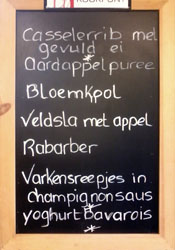 Casselerrib met
gevuld ei
*
Aardappelpuree
Bloemkool
Veldsla met appel
Rabarber
Varkensreepjes in
champignonsaus
*
yoghurt Bavarois
*